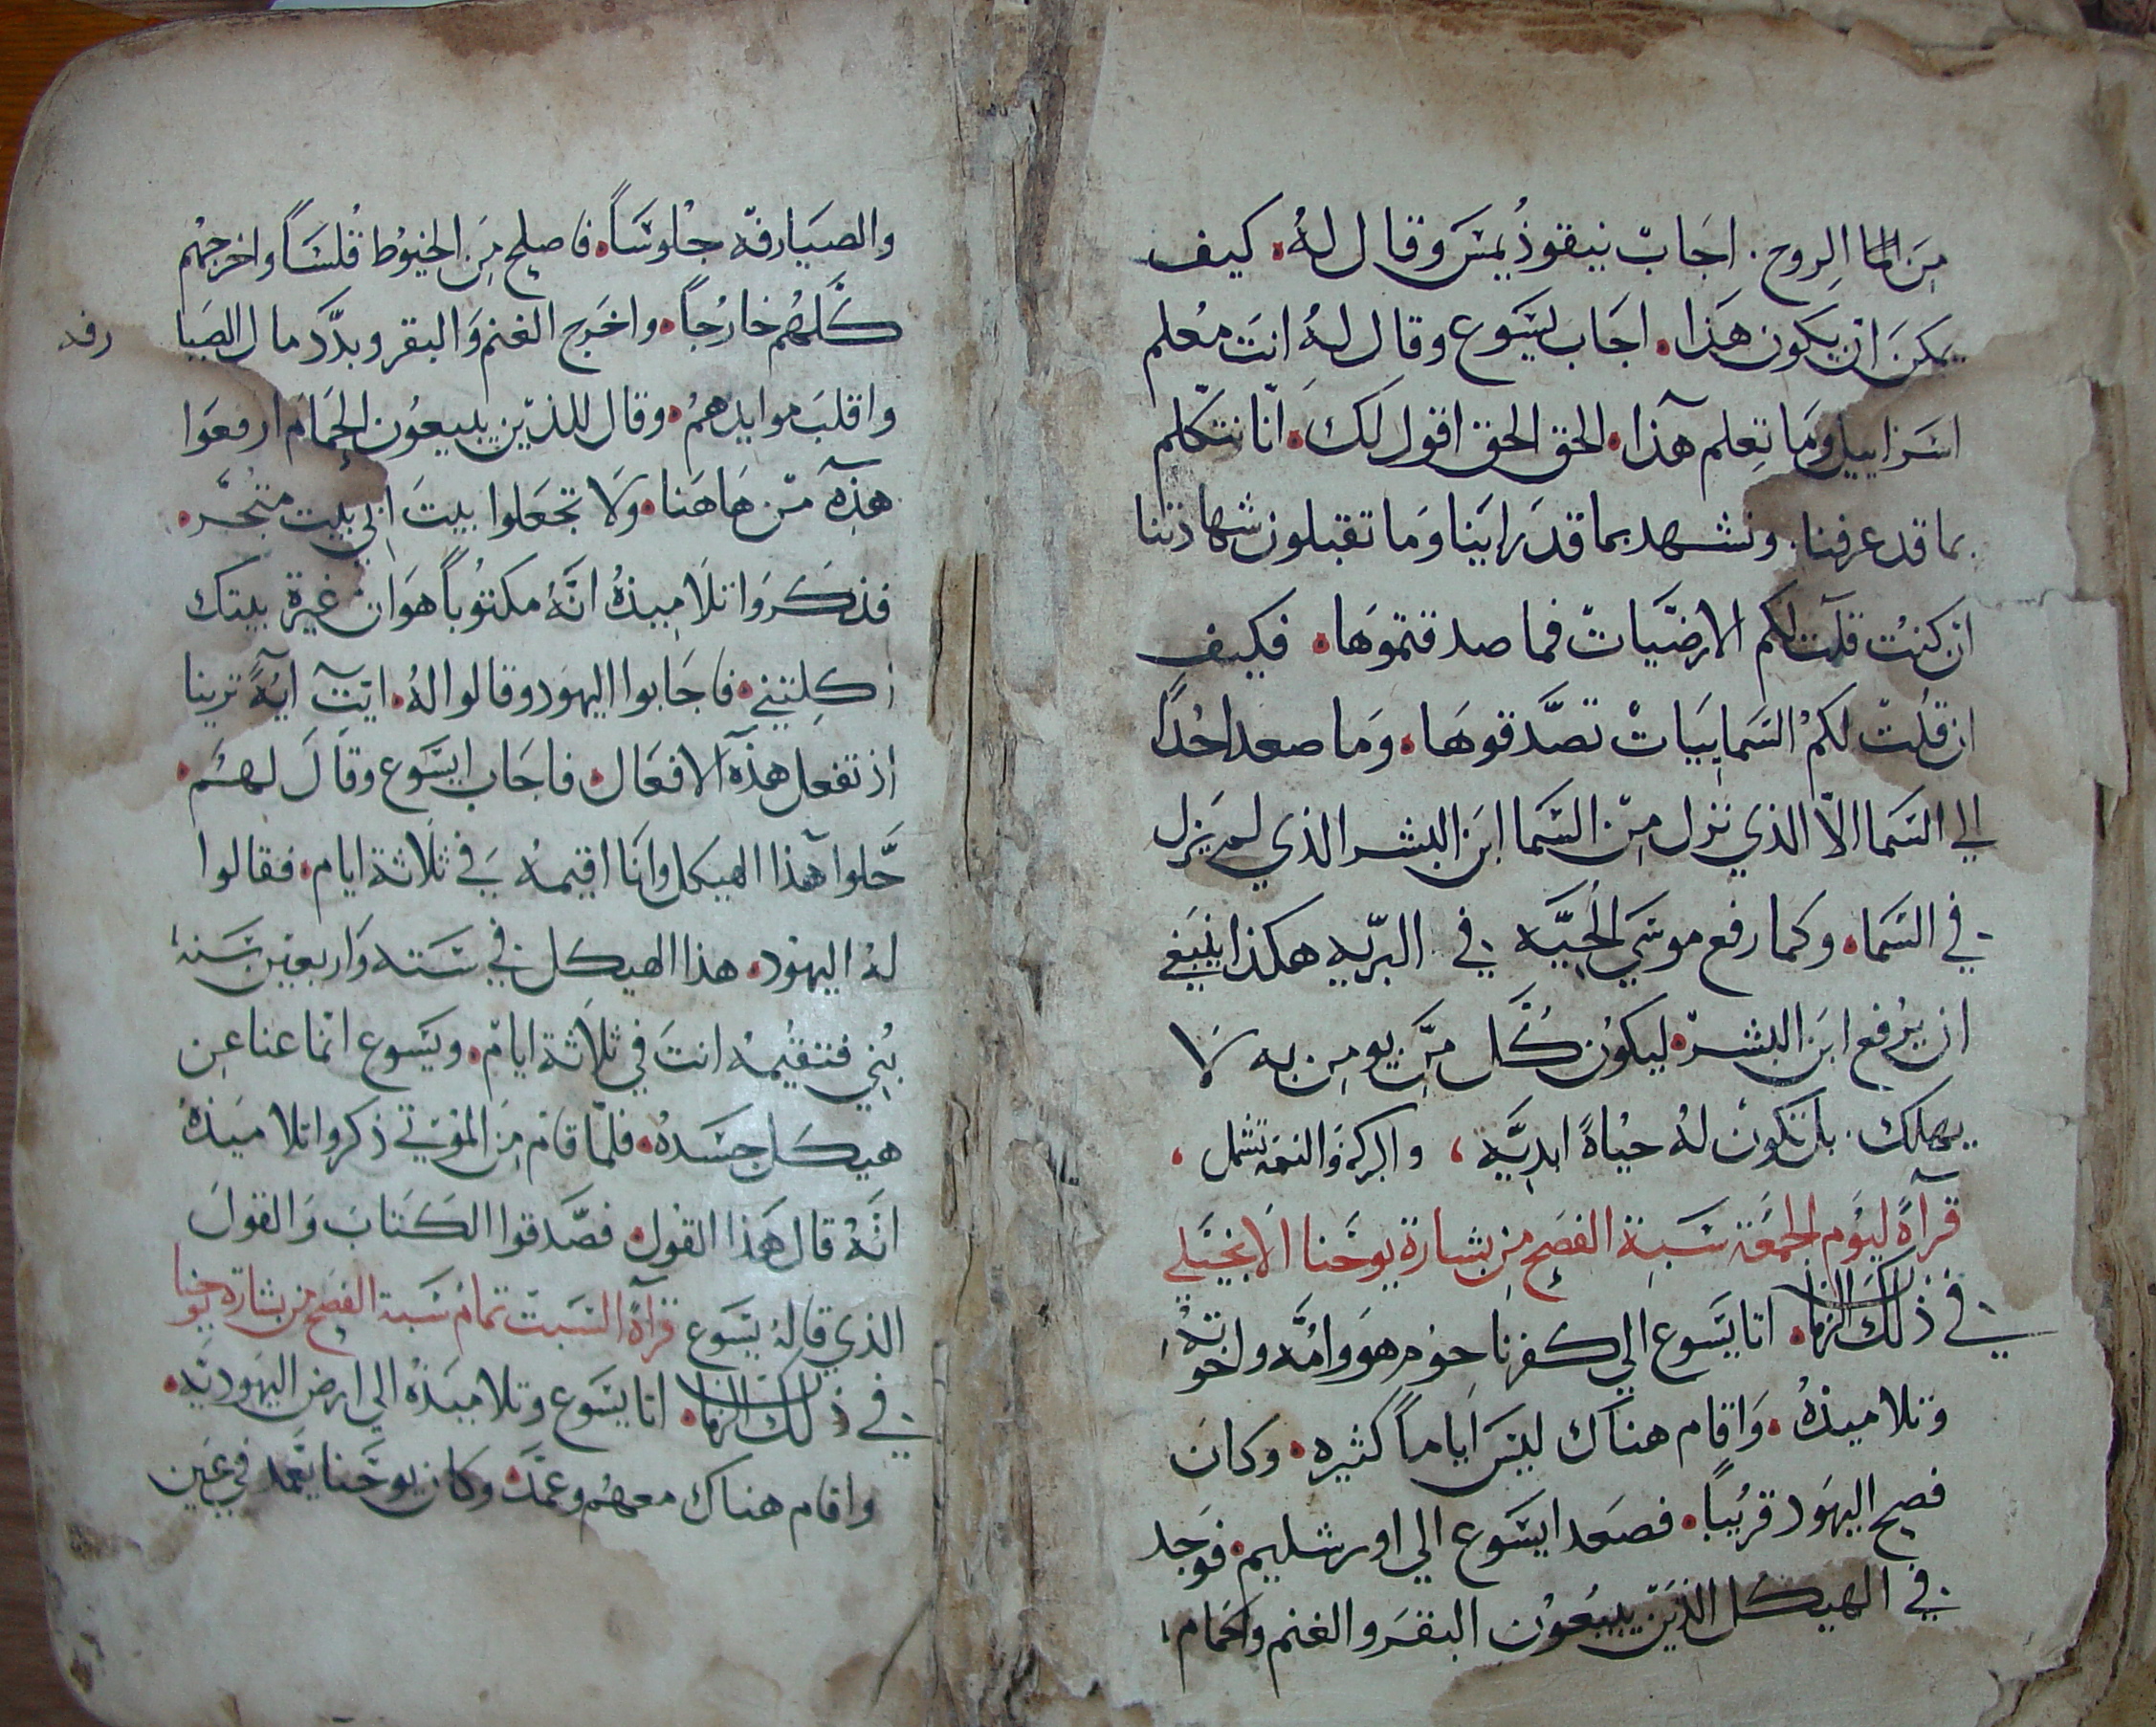 من الما الروح. اجاب نيقوذيمس وقال له. كيف
يمكن ان يكون هذا. اجاب يسوع وقال له انت معلم
اسراييل وما تعلم هذا. الحق الحق اقول لك. انا نتكلم
بما قد عرفنا. ونشهد بما قد راينا وما تقبلون شهادتنا
ان كنت قلت لكم الارضيات فما صدقتموها. فكيف
ان قلت لكم السماييات تصدقوها. وما صعد احدا
الي السما الا الذي نزل من السما ابن البشر الذي لم يزل
في السما. وكما رفع موسي الحيه في البريه هكذا ينبغي
ان يرفع ابن البشر. ليكون كل من يومن به لا
يهلك. بل تكون له حياة ابدية، والبركة والنعمة تشمل.
قرآة ليوم الجمعة سبة الفصح من بشارة يوحنا الانجيلي
في ذلك الزمان. اتا يسوع الي كفرناحوم هو وامه واخوته
وتلاميذه. واقام هناك ليس اياما كثيره. وكان
فصح اليهود قريبا. فصعد ايسوع الي اورشليم. فوجد
في الهيكل الذين يبيعون البقر والغنم والحمام
والصيارفه جلوسا. فاصلح من الخيوط قلسا واخرجهم
كلهم خارجا. واخرج الغنم والبقر وبدد مال الصيا
رفه
واقلب موايدهم. وقال للذين يبيعون الحمام ارفعوا
هذه من هاهنا. ولا تجعلوا بيت ابي بيت متجر.
فذكروا تلاميذه انه مكتوبا هو ان غيرة بيتك
اكلتني. فاجابوا اليهود وقالوا له. ايت آية ترينا
اذ تفعل هذه الافعال. فاجاب ايسوع وقال لهم.
حلوا هذا الهيكل وانا اقيمه في ثلاثة ايام. فقالوا
له اليهود. هذا الهيكل في سته واربعين سنه
بني فتقيمه انت في ثلاثة ايام. ويسوع انما عنا عن
هيكل جسده. فلما قام من الموتي ذكروا تلاميذه
انه قال هذا القول. فصدقوا الكتاب والقول
الذي قاله يسوع قرآة السبت تمام سبة الفصح من بشارة يوحنا
في ذلك الزمان. اتا يسوع وتلاميذه الي ارض اليهودية.
واقام هناك معهم وعمد. وكان يوحنا يعمد في عين